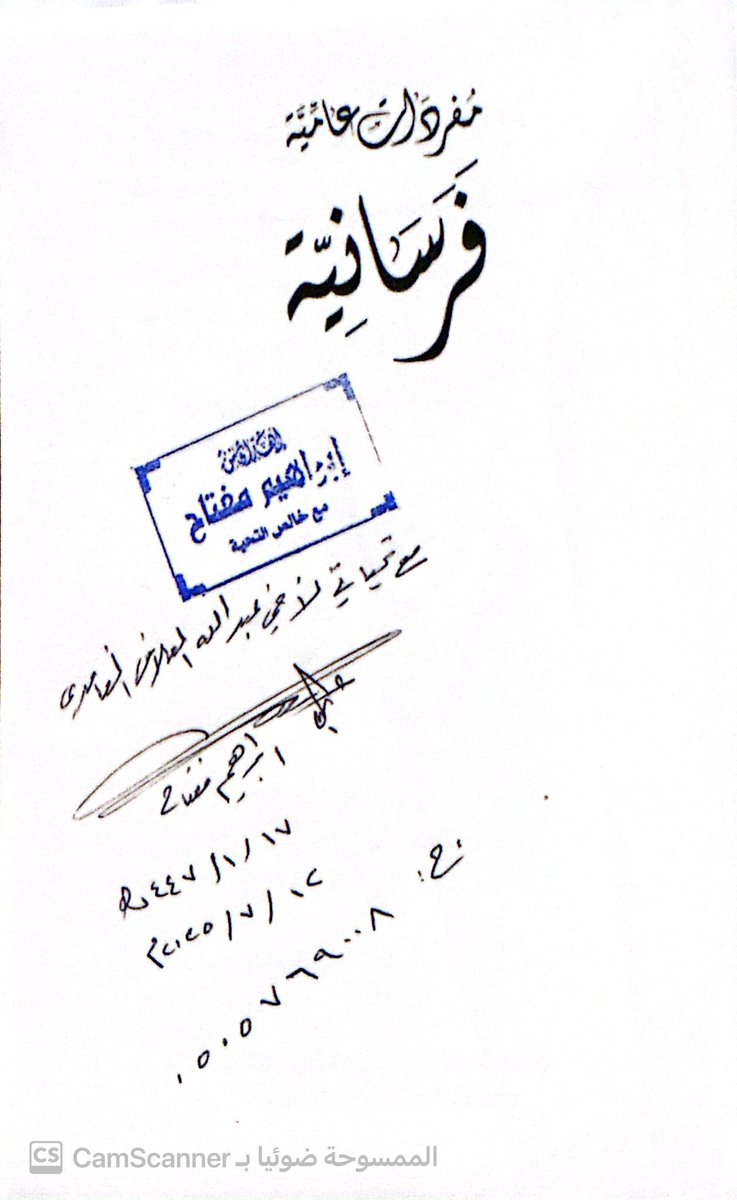 مُفردَات عَامِّيَّة
فَرَسَانِيَّة
إبراهيم مفتاح
مع خالص التحية
مع تحياتي لأخي عبدالله
ابراهيم مفتاح
١٤٤٧/١/١٧هـ
٢٠٢٥/٧/١٢م
ج:
٠٥٠٥٧٦٩٠٠٨
CS CamScanner الممسوحة ضوئيا بـ